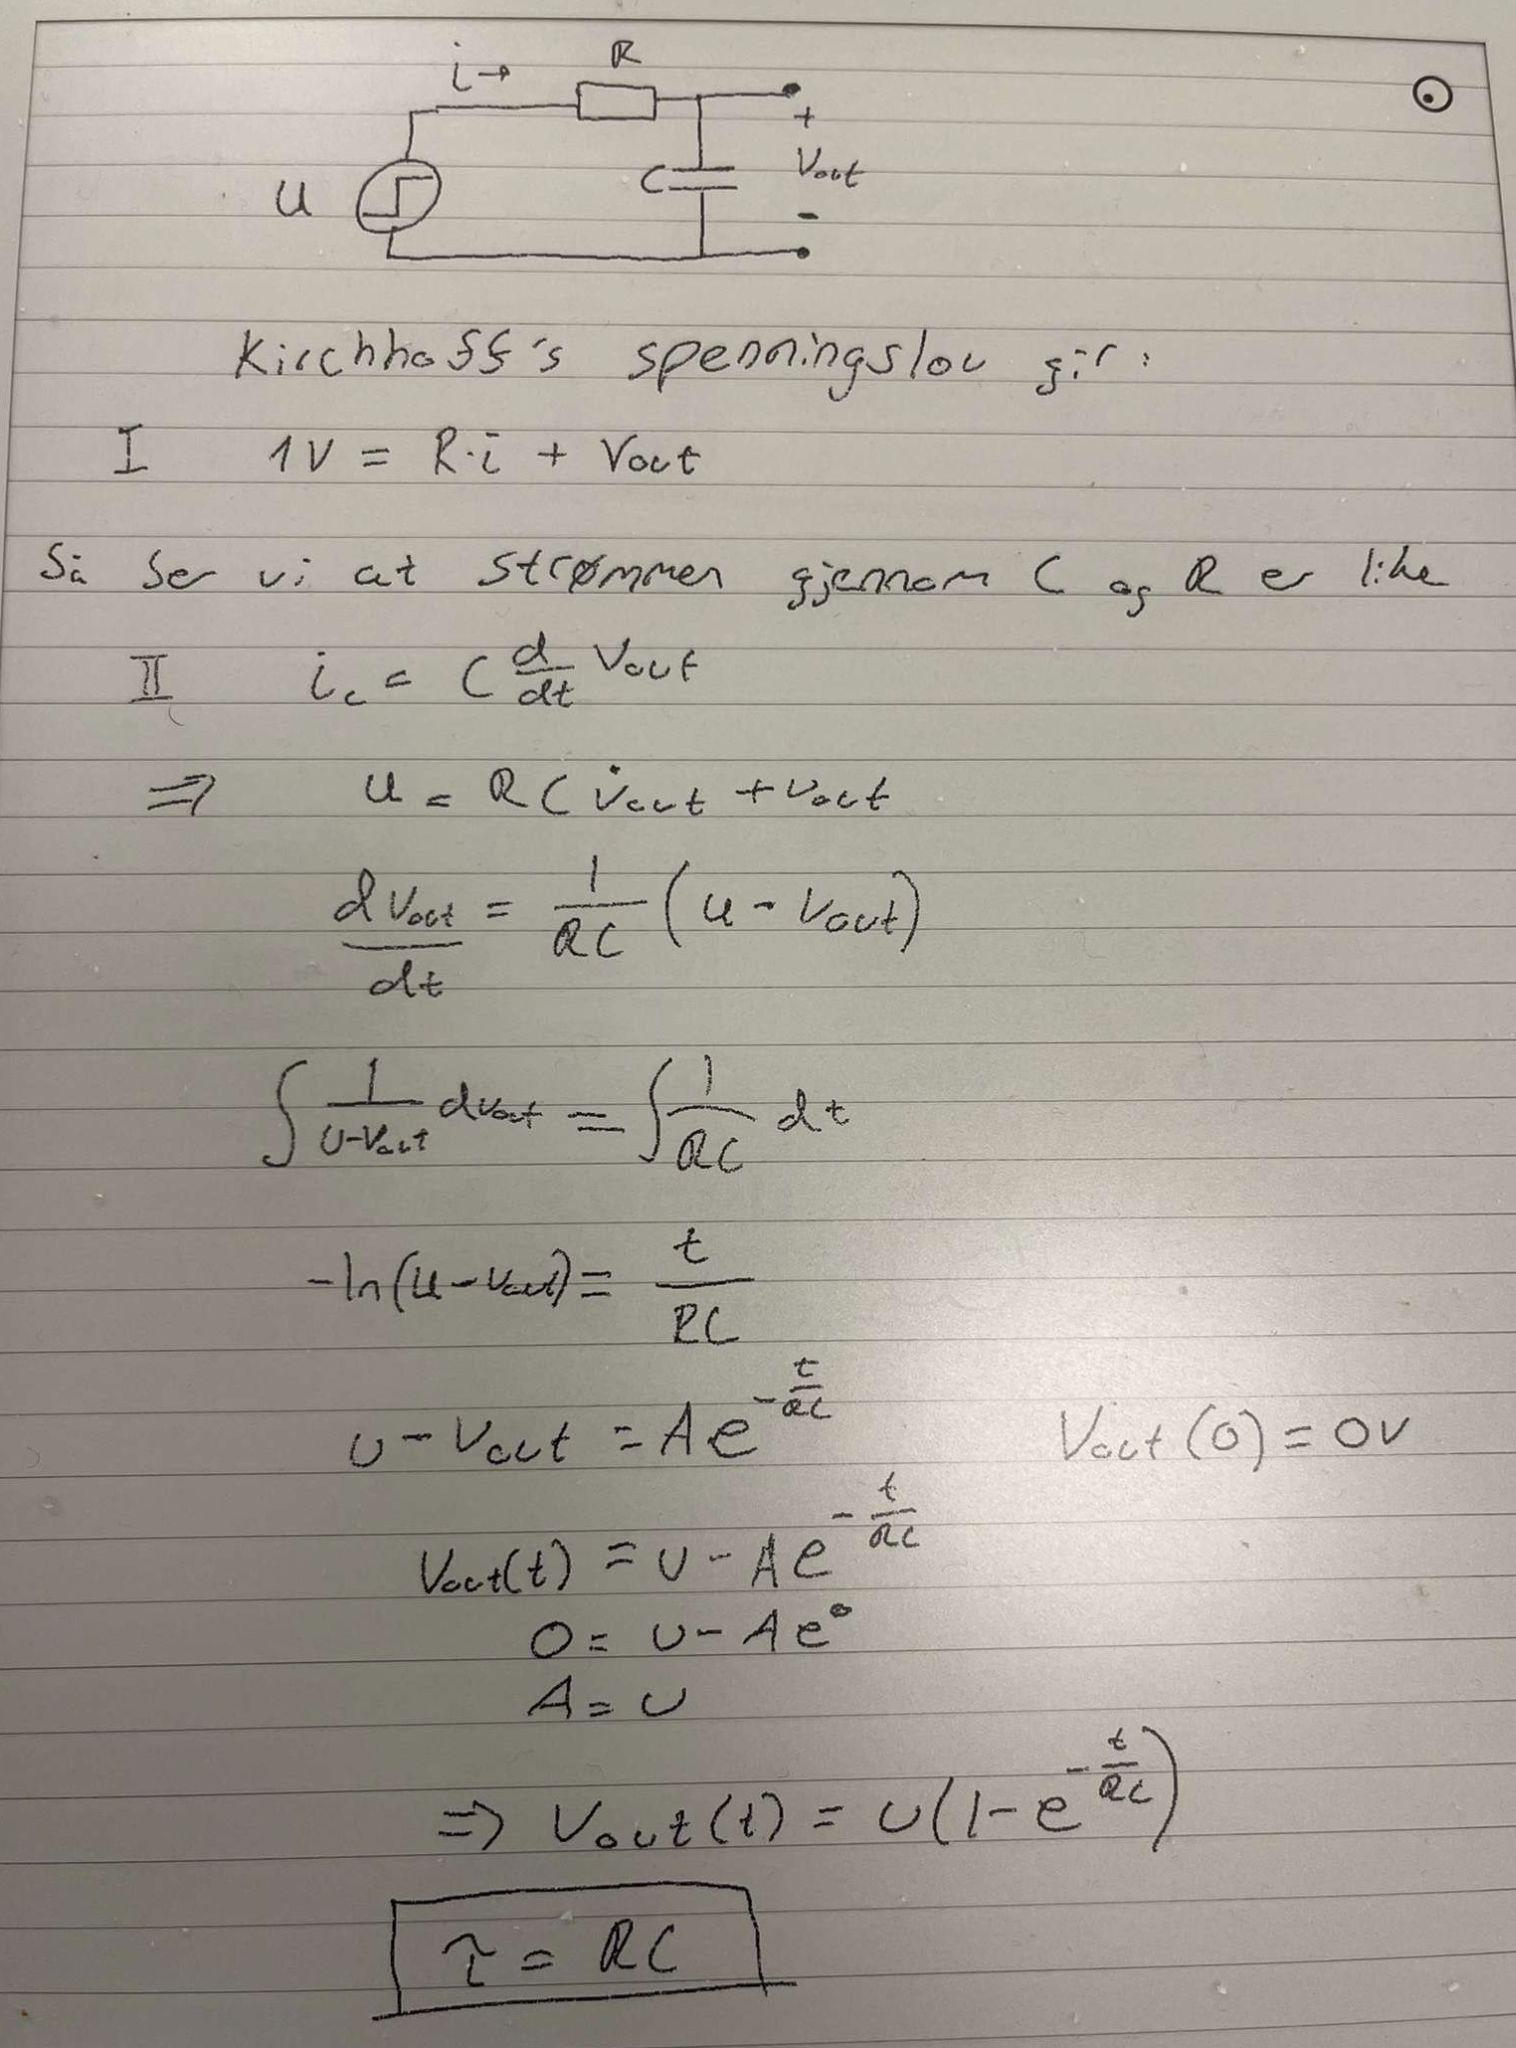 i→ R
+
U C Vout
-
Kirchhoff's spenningslov gir:
I 1V = R·i + Vout
Så ser vi at strømmen gjennom C og R er like
II i_c = C d/dt Vout
⇒ u = RC v̇out + vout
dVout/dt = 1/RC (u - Vout)
∫ 1/(U-Vout) dvout = ∫ 1/RC dt
-ln(u-vout) = t/RC
U - Vout = Ae^(-t/RC) Vout(0) = 0V
Vout(t) = U - Ae^(-t/RC)
0 = U - Ae^0
A = U
⇒ Vout(t) = U(1-e^(-t/RC))
τ = RC